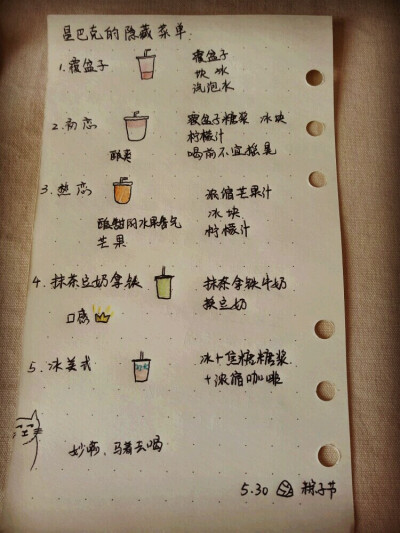 星巴克的隐藏菜单:
1.覆盆子
覆盆子
块冰
汽泡水
2.初恋
酸爽
覆盆子糖浆 冰块
柠檬汁
喝前不宜摇晃
3.热恋
酸甜的水果香气
芒果
浓缩芒果汁
冰块
柠檬汁
4.抹茶豆奶拿铁
口感
抹茶拿铁牛奶
换豆奶
5.冰美式
冰+焦糖糖浆
+浓缩咖啡
妙啊,马着去喝
5.30 粽子节